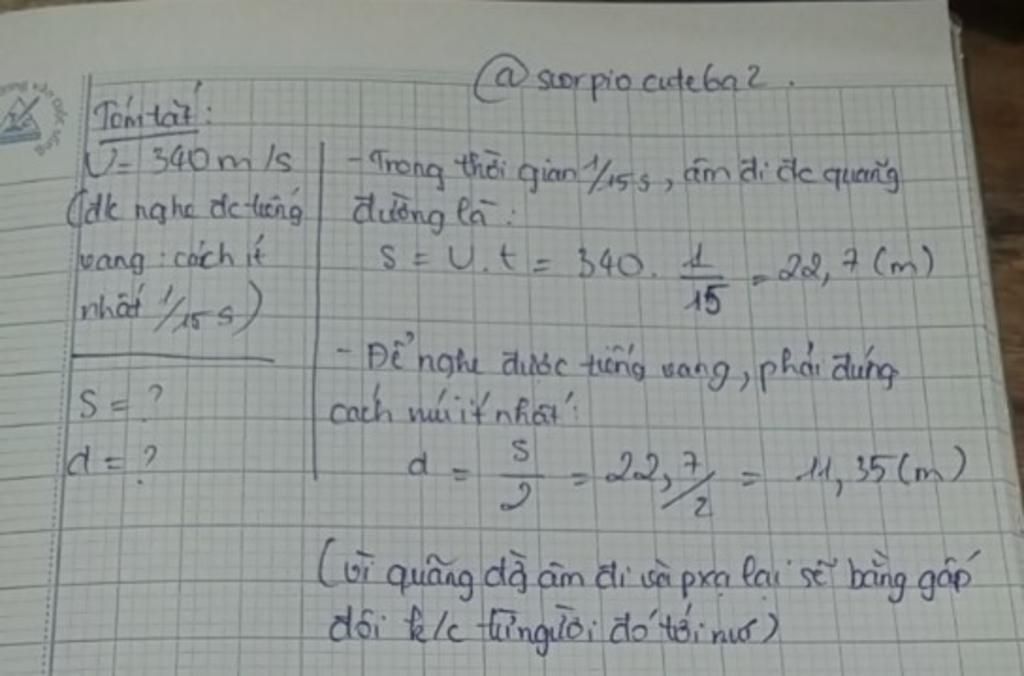 @ scorpiocuteba2.
Tóm tắt:
v = 340m/s
(đk nghe đc tiếng
vang: cách ít
nhất 1/15 s)
s = ?
d = ?
- Trong thời gian 1/15 s, âm đi đc quãng
đường là:
s = v.t = 340. 1/15 = 22,7 (m)
- Để nghe được tiếng vang, phải đứng
cách núi ít nhất:
d = s/2 = 22,7/2 = 11,35 (m)
(vì quãng đg âm đi và pxạ lại sẽ bằng gấp
đôi k/c từ người đó tới núi)